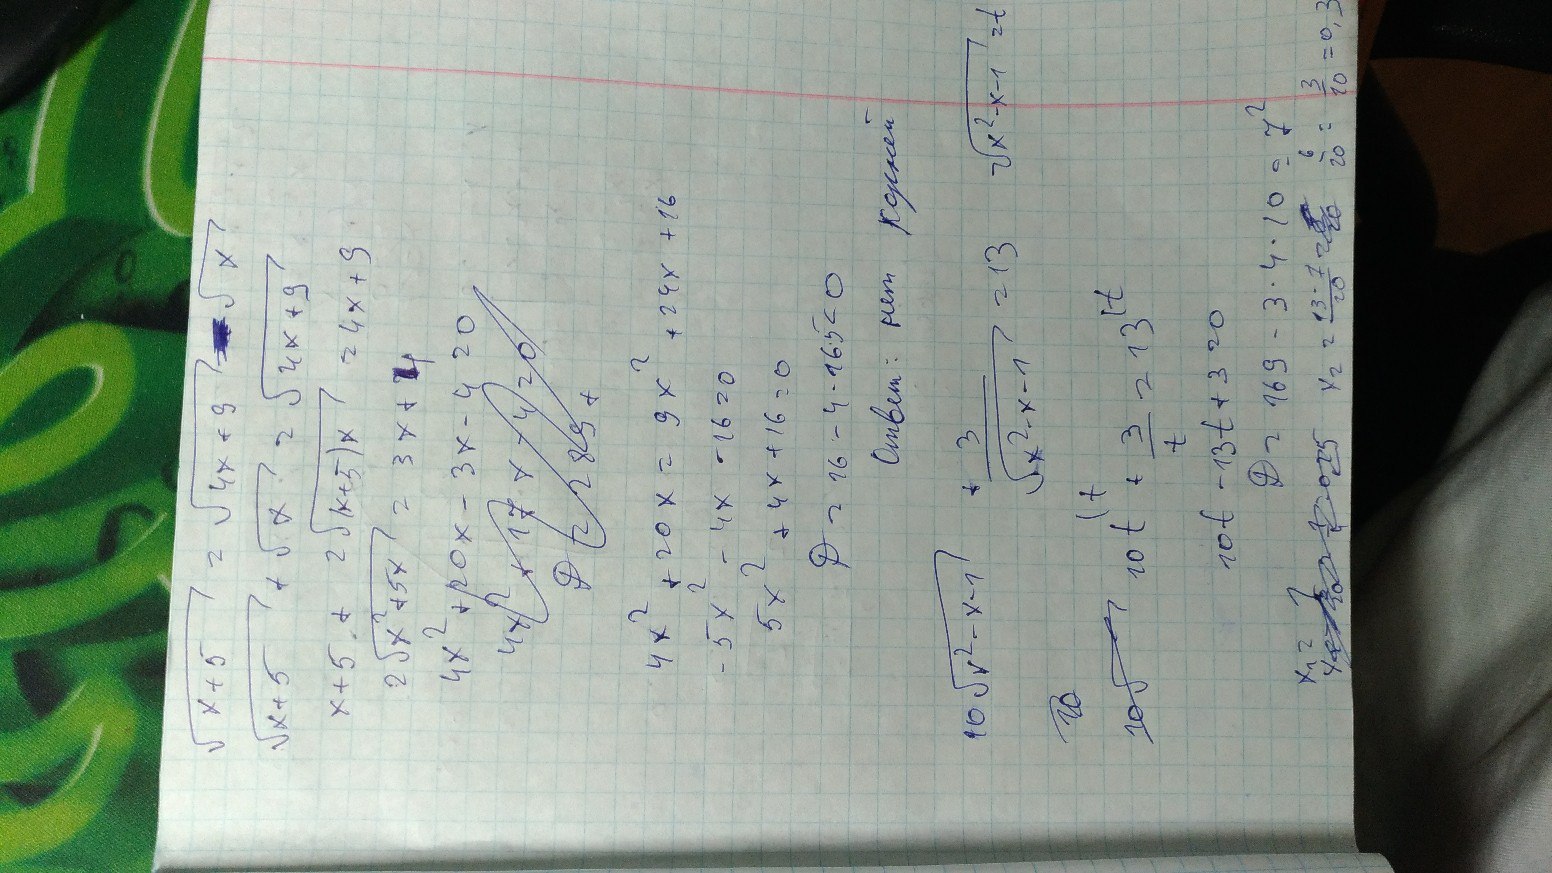 √(x+5) = √(4x+9) - √x
√(x+5) + √x = √(4x+9)
x+5 + 2√((x+5)x) = 4x+9
2√(x²+5x) = 3x+4
4x²+20x-3x-4=0
4x²+20x = 9x²+24x+16
-5x²-4x-16=0
5x²+4x+16=0
D = 16-4·16·5<0
Ответ: нет корней
10√(x²-x-1) + 3/√(x²-x-1) = 13 √(x²-x-1) = t
10t + 3/t = 13 |t
10t - 13t + 3 = 0
D = 169 - 3·4·10 = 7²
x₂ = (13-7)/20 = 6/20 = 3/10 = 0,3